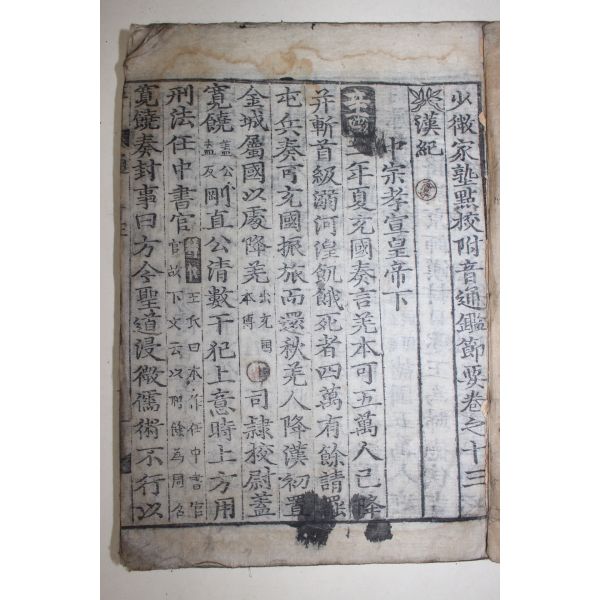 少微家塾點校附音通鑑節要卷之十三
漢紀
中宗孝宣皇帝下
辛酉 年夏充國奏言羌本可五萬人已降
并斬首級溺河湟飢餓死者四萬有餘請罷
屯兵奏可充國振旅而還秋羌人降漢初置
金城屬國以處降羌 出充國本傳 司隷校尉蓋
寬饒 蓋公盍反 剛直公清數干犯上意時上方用
刑法任中書官 王氏曰本作任中書宦官故下文云以刑餘爲周召
寬饒奏封事曰方今聖道浸微儒術不行以